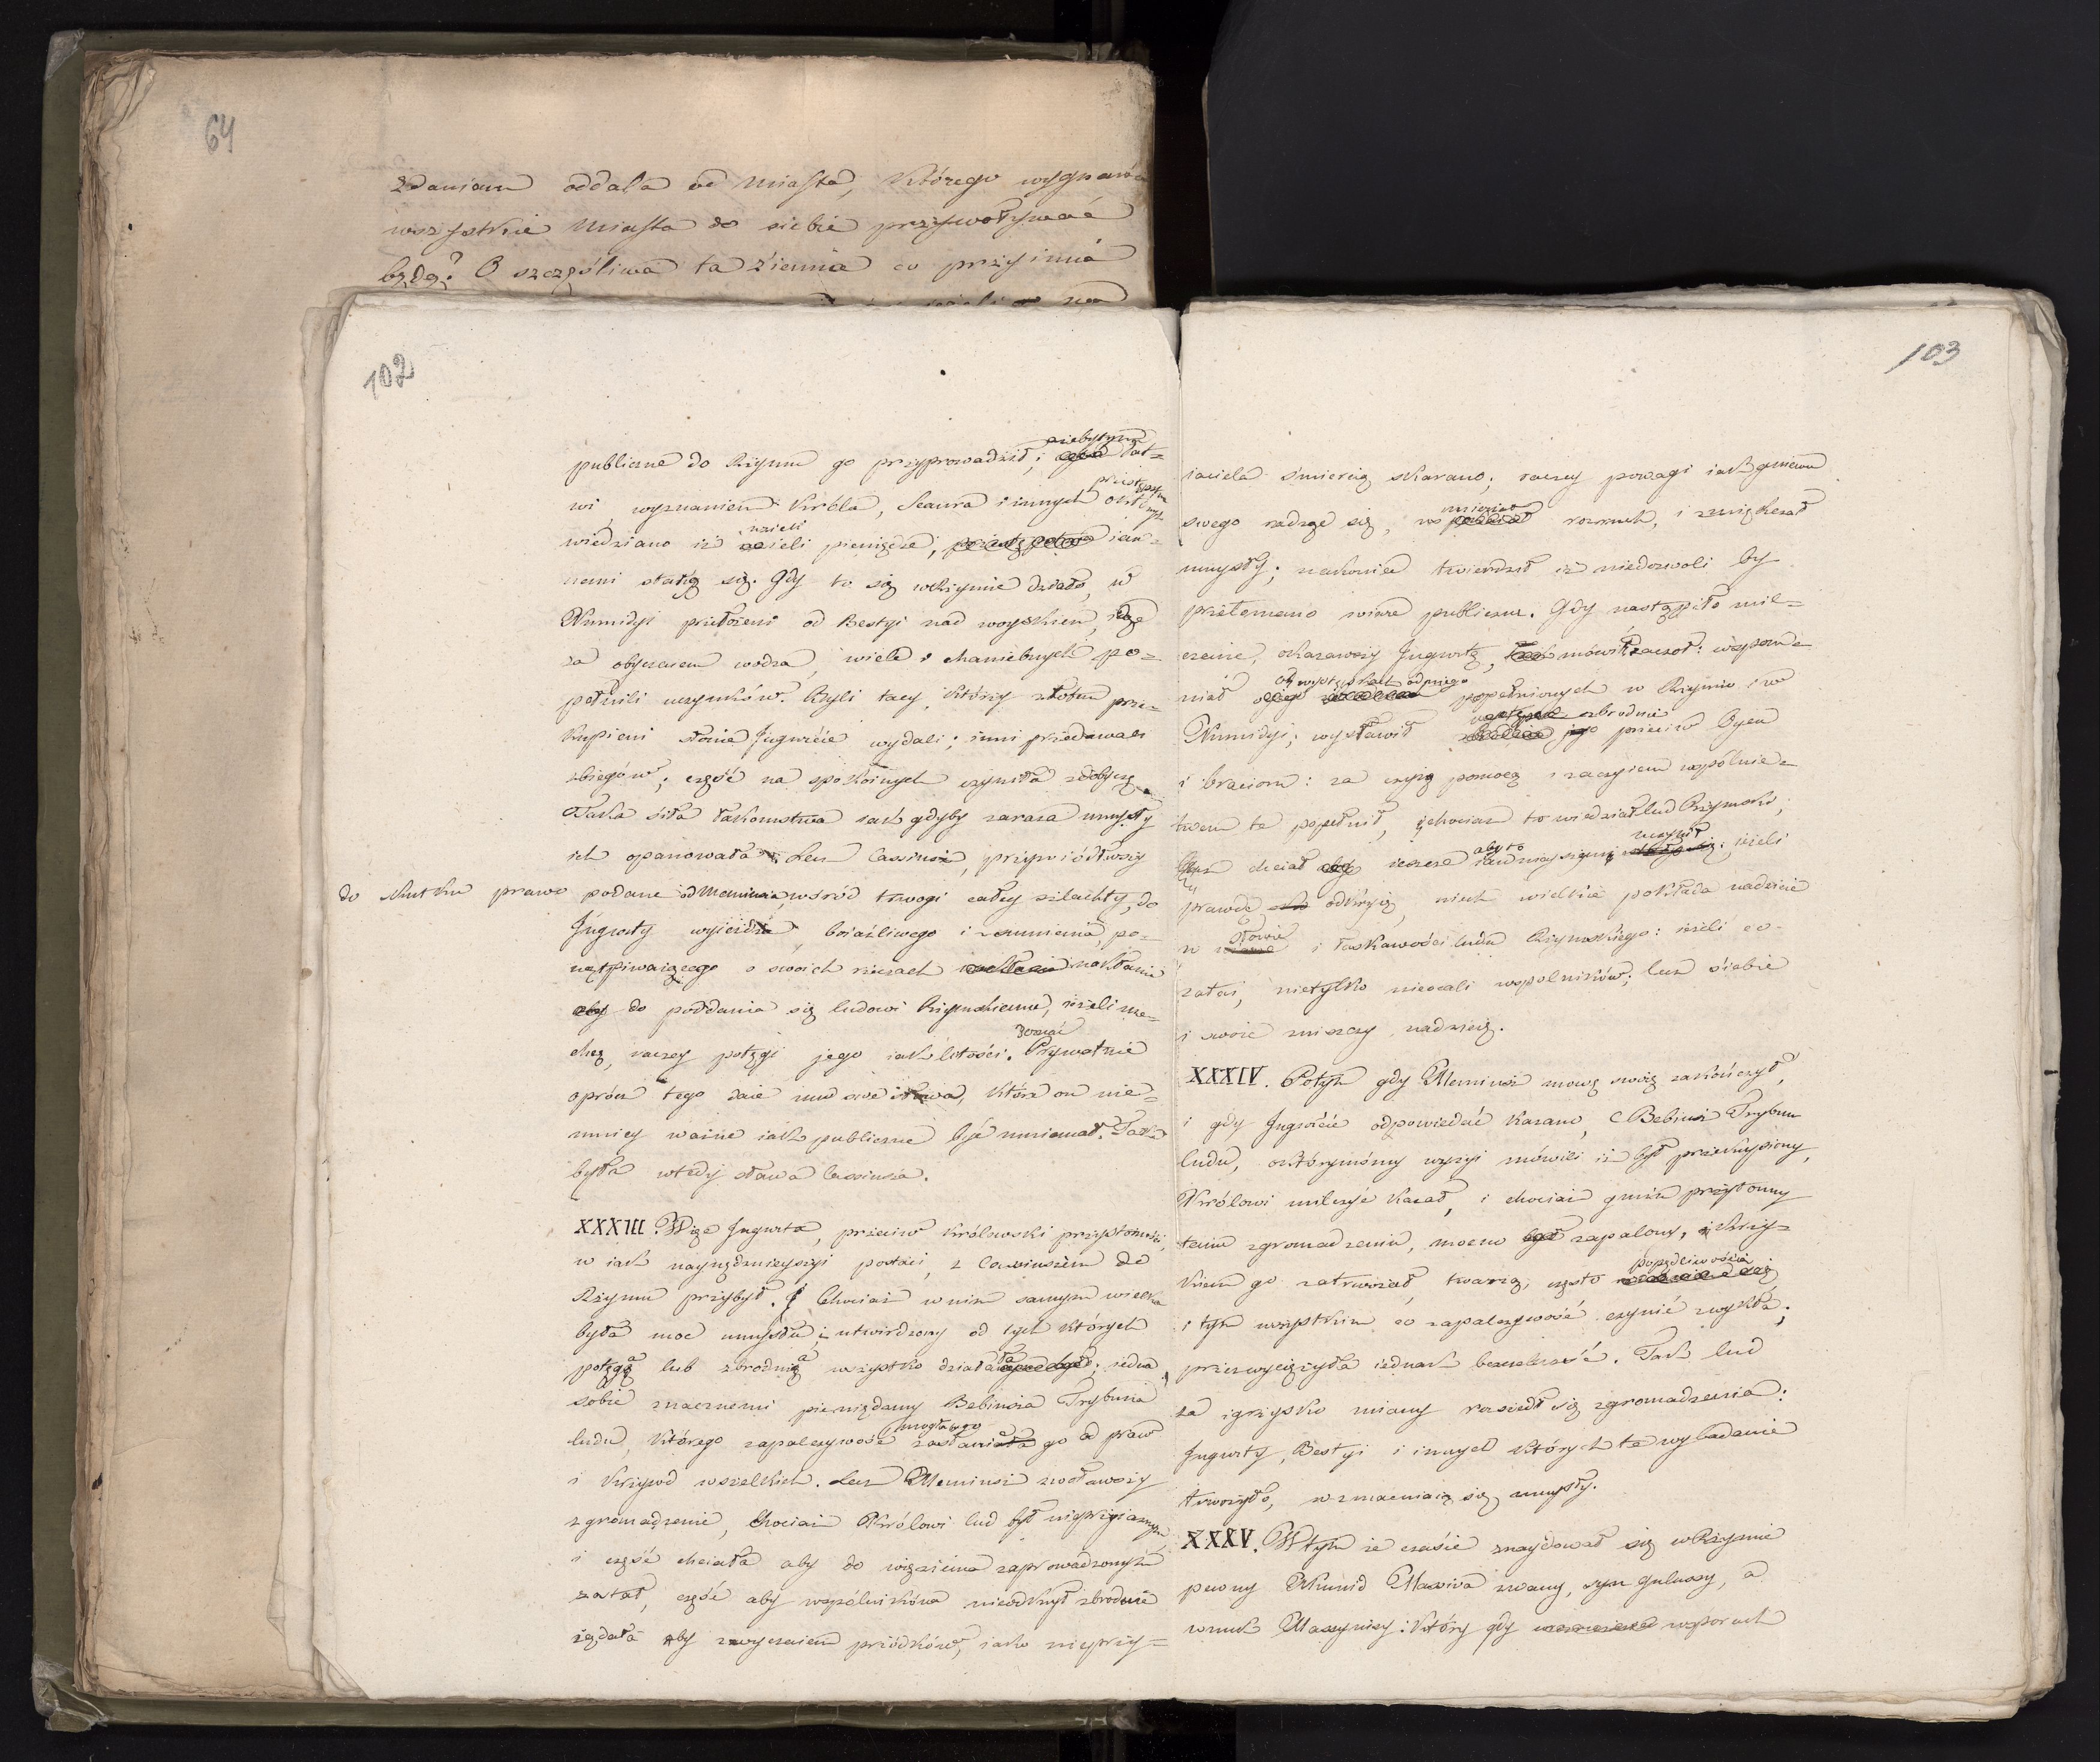 64
zdaniem oddala od miasta, którego wygnańca
wszystkie miasta do siebie przyswoływać
będą? O szczęśliwa ta ziemia co przyimie
102
publiczne do Rzymu go przyprowadził; niebytym łat=
wi wyznaniem Króla, Scaura i innych o których
przestępstw
wiedziano iż wzieli pieniądze, iaw=
nemi stałÿ się. Gdy to się wRzymie działo, w
Numidyi przełożeni od Bestyi nad woyskiem, idąc
za obyczaiem wodza, wiele i chaniebnych po=
pełnili uczynków. Byli tacy, którzy złotem prze=
kupieni słonie Jugurcie wydali; inni przedawali
zbiegów; część na spokoinych czyniła zdobycz
Taka siła łakomstwa iak gdyby zaraza umysły
ich opanowała. Lecz Cassiusz, przywiódłszy
do skutku prawo podane od Meminia, wśród trwogi całey szlachty, do
Jugurty wyieżdża, boiaźliwego i z sumienia, po=
wątpiwaiącego o swoich rzeczach nakłania
do poddania się ludowi Rzymskiemu, ieżeli nie=
chcę, raczey potęgi jego iak litości. doznać Prywatnie
oprócz tego daie mu swe słowa, które on nie=
mniey ważne iak publiczne być mniemał. Taka
była wtedy sława Cassiusza.
XXXIII. Więc Jugurta, przeciw królewski przystoiności,
w iak naynędznieyszyi postaci, z Cassiuszem do
Rzymu przybył. Chociaż w nim samym wielka
była moc umysłu i utwirdzony od tych których
potęgą lub zbrodnią wszystko działa; iedna
sobie znacznemi pieniędzmy Bebiusza Trybuna
ludu, którego zapalczywość mogłaby go od praw
i krzywd wszelkich. Lecz Memiusz zwoławszy
zgromadzenie, chociaż Królowi lud był nieprzyiaznym
i część chciała aby do więzienia zaprowadzonym
został, część aby wspólników nieodkrył zbrodnie
żądała aby zwyczaiem przodków, iako nieprzy=
103
iaciela śmiercią skarano; raczey powagi iak gniewu
swego radząc się, uśmierzał rozruch, i zmiękczał
umysły; nakoniec twierdził iż niedozwoli by
przełamano wiarę publiczną. Gdy nastąpiło mil=
czenie, okazawszy Jugurtę, mówić zaczoł: wspom=
niał o występkach od niego popełnionych w Rzymie i w
Numidyi; wystawił zbrodnie jego przeciw Oycu
i braciom: za czyią pomocą i zaczyiem wspólnic=
twem te popełnił, chociaż to wiedział lud Rzymski;
chciał ieszcze aby to iawnieyszym uczynił; ieżeli
prawdę odkryie, niech wielkie pokłada nadzieie
w słowie i łaskawości ludu Rzymskiego: ieżeli co-
zatai, nietylko nieocali wspolników; lecz siebie
i swoie zniszczy nadzieię.
XXXIV. Potym gdy Memiusz mowę swoię zakończył,
i gdy Jugurcie odpowiedać kazano, C Bebiusz Trybun
ludu, októrymśmy wyżyi mówili iż był przekupiony,
Królowi milczyć kazał, i chociaż gmin przytomny
temu zgromadzeniu, mocno zapalony, i krzy=
kiem go zatrważał, twarzą, często popędliwością
i tym wszystkim co zapalczywość czynić zwykła;
przezwyciężyła iednak bezczelność. Tak lud
za igrzysko miany rozszedł się zgromadzenia:
Jugurty, Bestyi i innych których te wybadanie
trwożyło, wzmacniaią się umysły.
XXXV. Wtym że czasie znaydował się wRzymie
pewny Numid Massiva zwany, syn Gulussy, a
wnuk Massynissy: który gdy wsporach